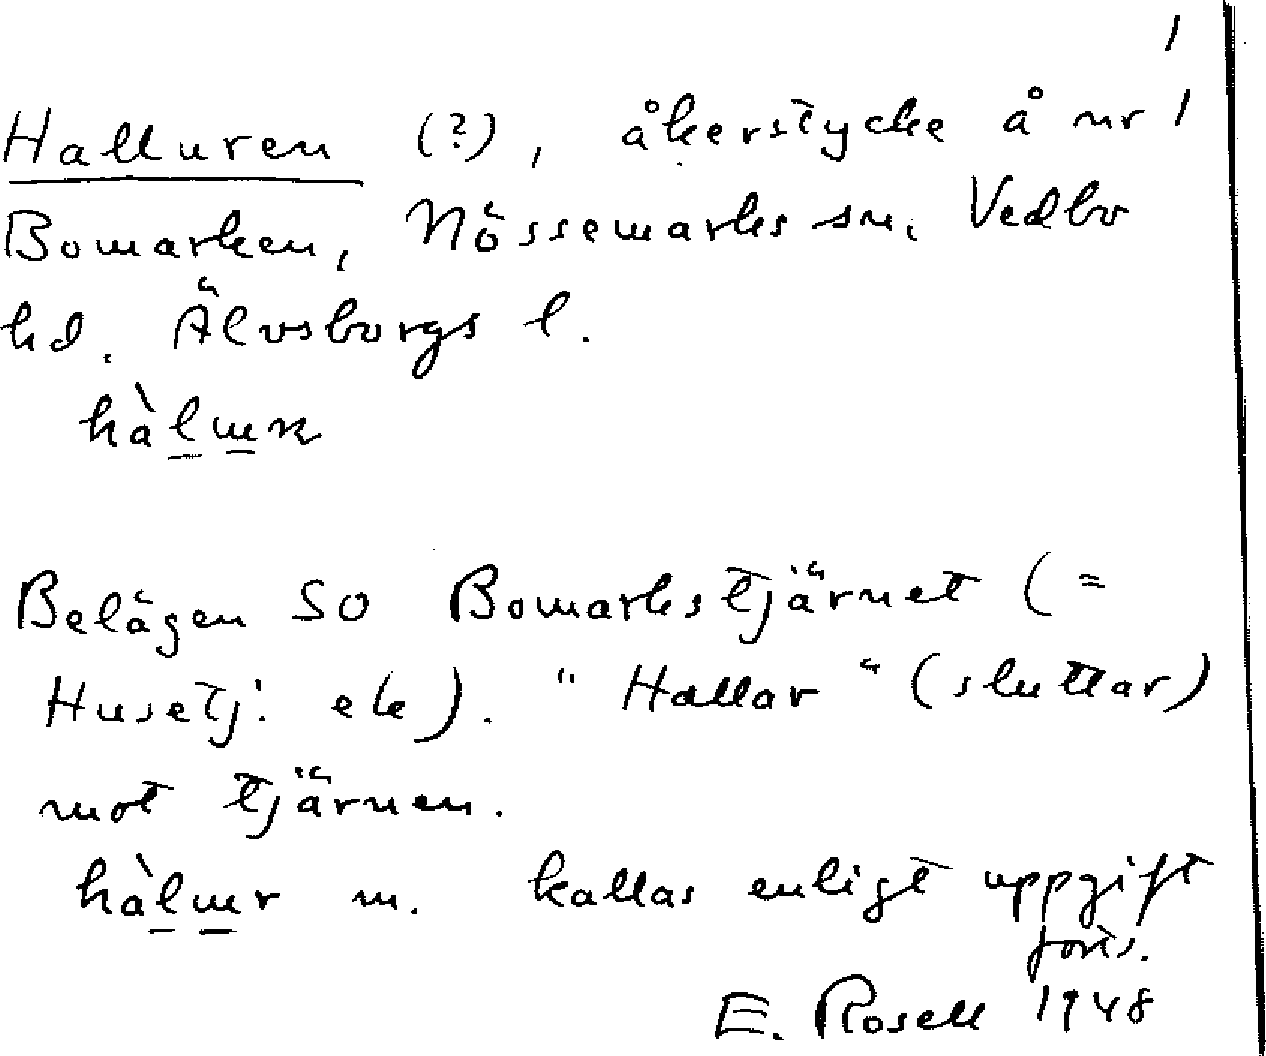 1
Halluren (?), åkerstycke å nr 1
Bomarken, Nössemarks sn. Vedbo
hd. Älvsborgs l.
hàlɯn
Belägen SO Bomarkstjärnet (=
Husetj: ek). "Hallar" (sluttar)
mot tjärnen.
hàlɯr m. kallas enligt uppgift
forts.
E. Rosell 1948